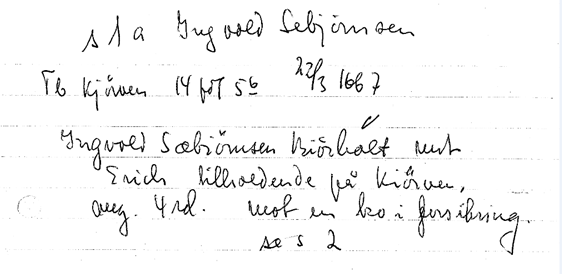 s 1 a Ingvold Sebjørnsen
Tb Kjöven 14 fol 5b 22/3 1667
Ingvold Sæbiörnsen Kiörholt mot
Erich tilholdende på Kiörven,
ang. 4 rd. mot en ko i forsikring.
se s 2